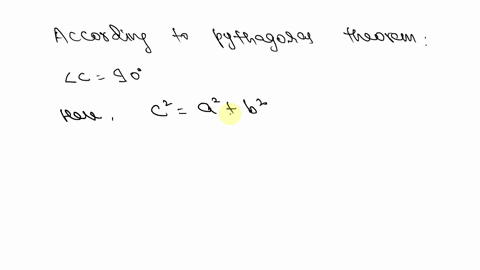 According to pythagoras theorem:
∠C = 90°
Here, c² = a² + b²